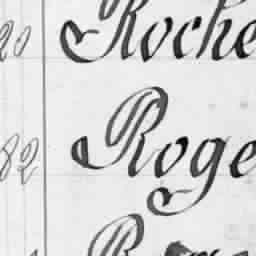 20 Roche
82 Roge